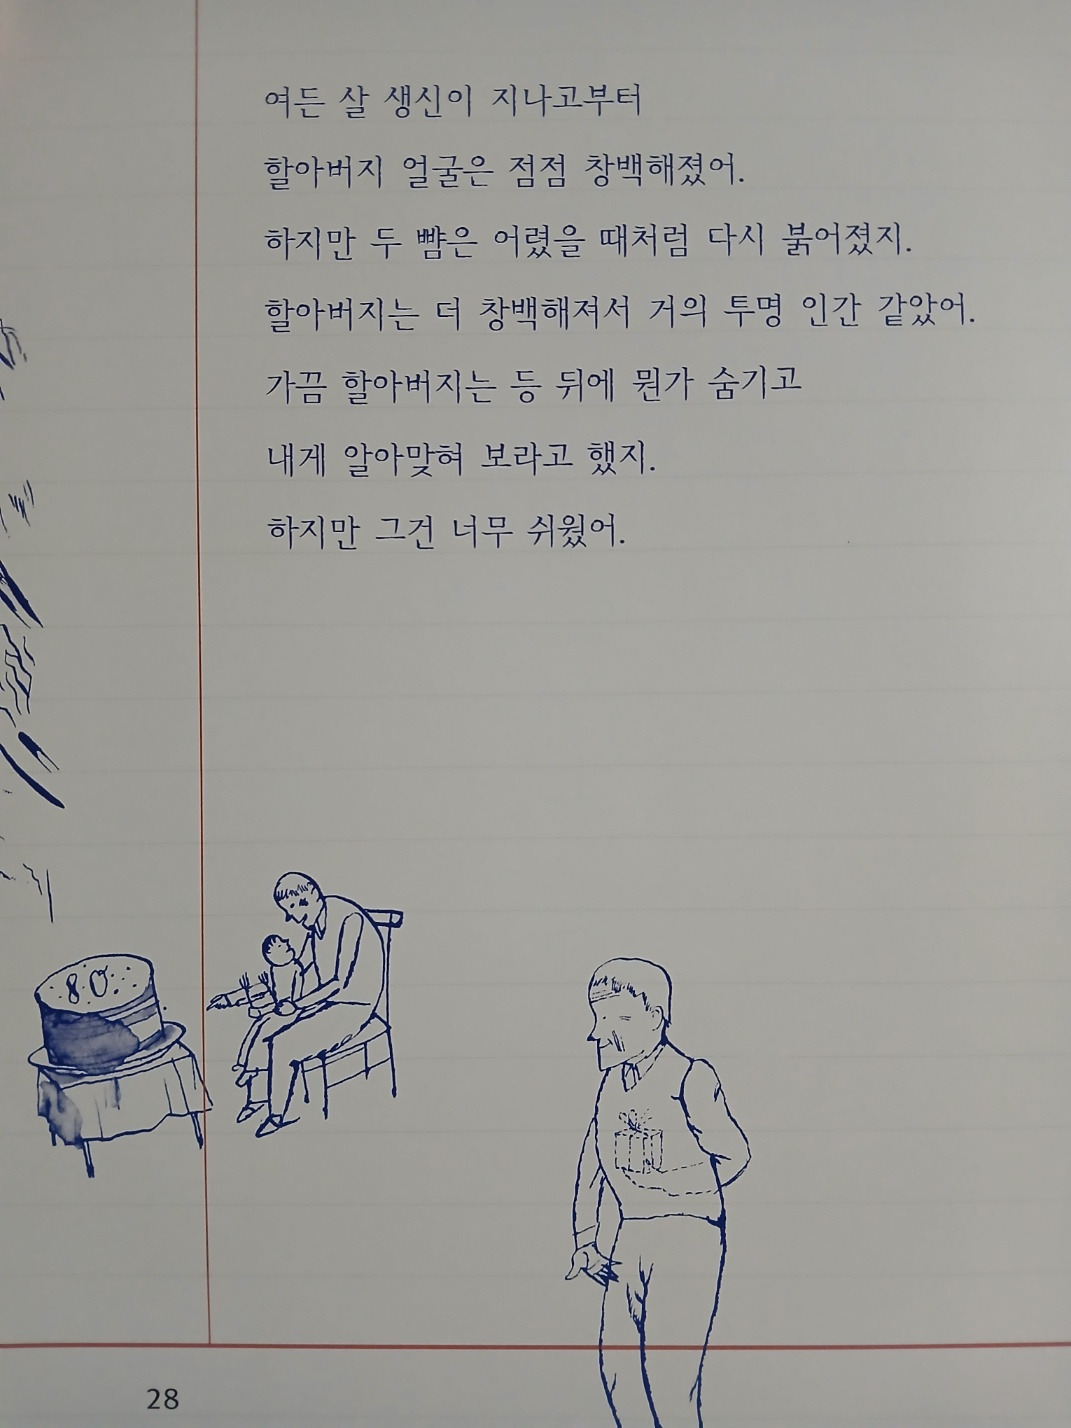 여든 살 생신이 지나고부터
할아버지 얼굴은 점점 창백해졌어.
하지만 두 뺨은 어렸을 때처럼 다시 붉어졌지.
할아버지는 더 창백해져서 거의 투명 인간 같았어.
가끔 할아버지는 등 뒤에 뭔가 숨기고
내게 알아맞혀 보라고 했지.
하지만 그건 너무 쉬웠어.
80
28